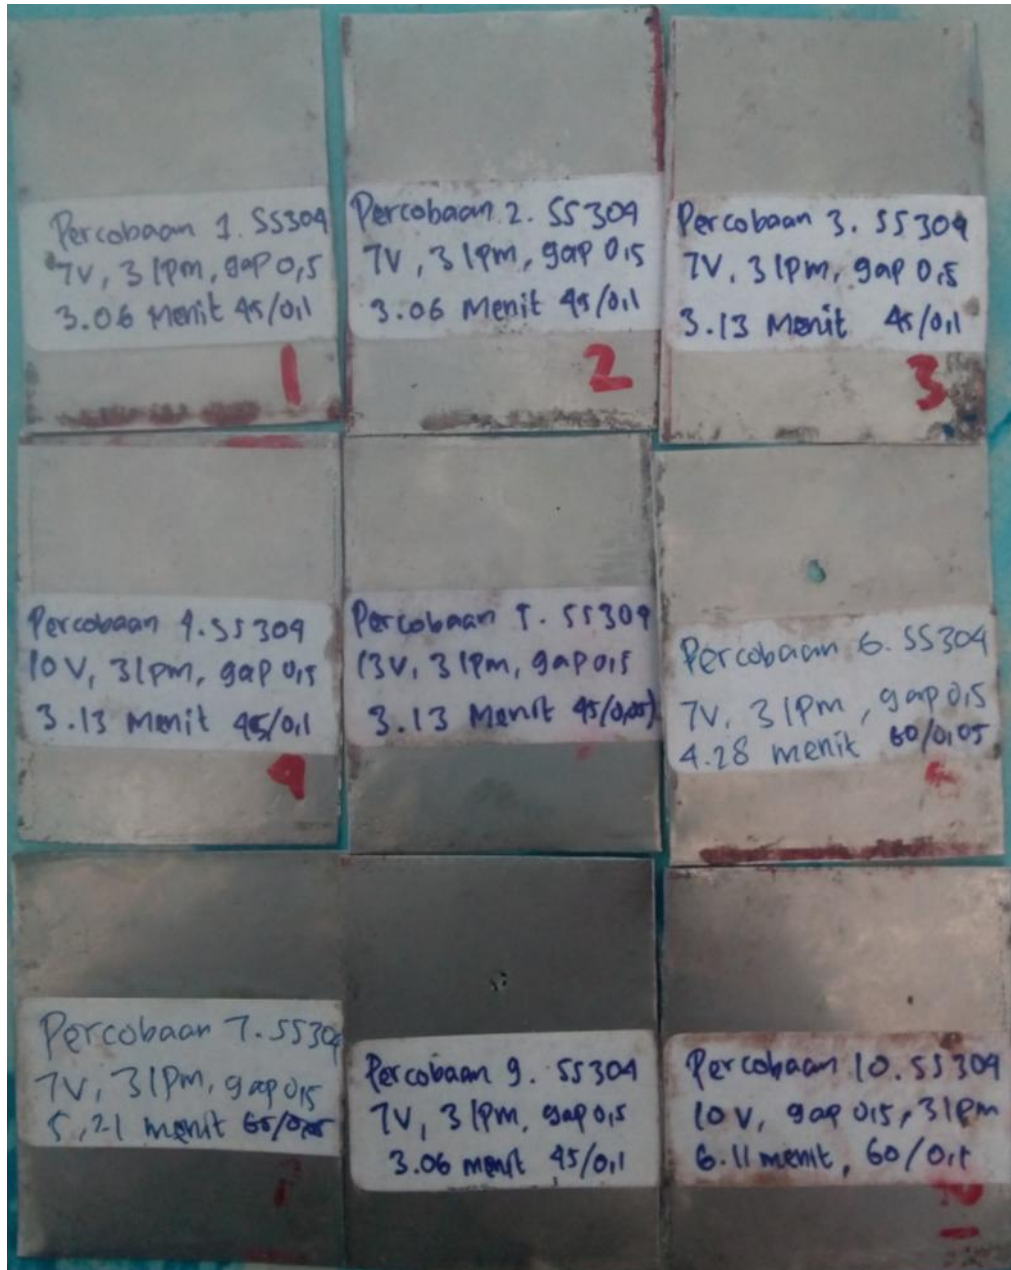 Percobaan 1. SS304
7V, 3 lpm, gap 0,5
3.06 Menit 45/0,1
1
Percobaan 2. SS304
7V, 3 lpm, gap 0,5
3.06 Menit 45/0,1
2
Percobaan 3. SS304
7V, 3 lpm, gap 0,5
3.13 Menit 45/0,1
3
Percobaan 4. SS304
10V, 3 lpm, gap 0,5
3.13 Menit 45/0,1
4
Percobaan 5. SS304
13V, 3 lpm, gap 0,5
3.13 Menit
Percobaan 6. SS304
7V, 3 lpm, gap 0,5
4.28 menit 60/0,05
Percobaan 7. SS304
7V, 3 lpm, gap 0,5
5,21 menit
Percobaan 9. SS304
7V, 3 lpm, gap 0,5
3.06 menit 45/0,1
Percobaan 10. SS304
10V, gap 0,5, 3 lpm
6.11 menit, 60/0,1